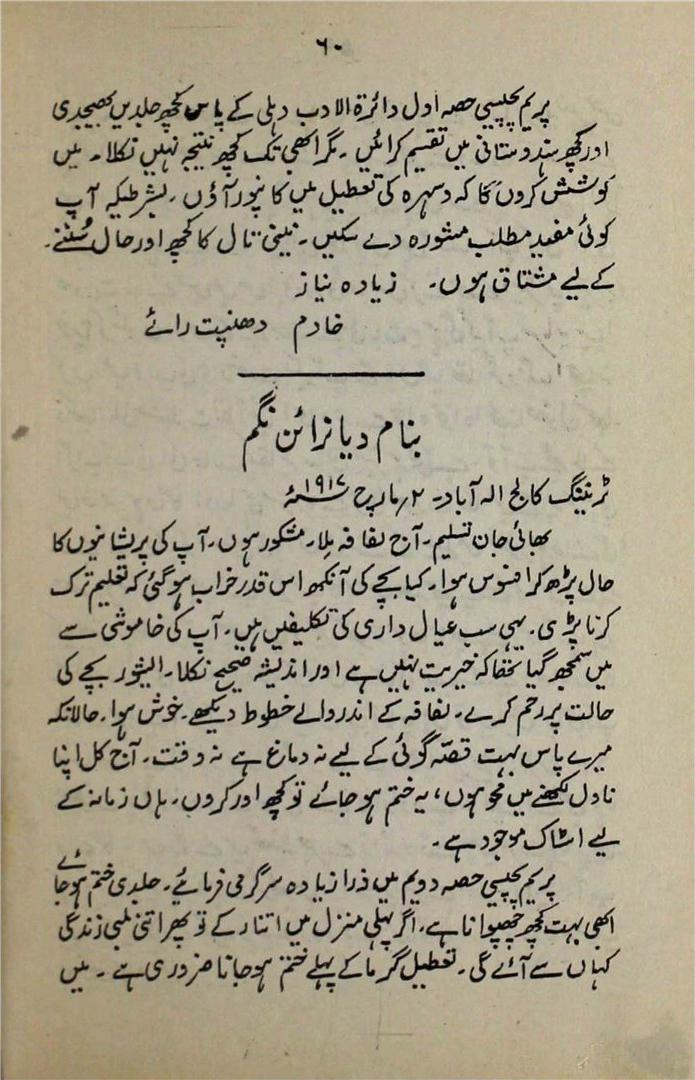 ۶۰
پریم پچیسی حصہ اول دائرۃ الادب دہلی کے پاس کچھ جلدیں بھیجدی
اور کچھ ہندوستانی میں تقسیم کرائیں۔ مگر ابھی تک کچھ نتیجہ نہیں نکلا۔ میں
کوشش کروں گا کہ دسہرہ کی تعطیل میں کانپور آؤں۔ بشرطیکہ آپ
کوئی مفید مطلب مشورہ دے سکیں۔ نینی تال کا کچھ اور حال سُننے۔
کے لیے مشتاق ہوں۔ زیادہ نیاز
خادم دھنپت رائے
بنام دیا نرائن نگم
ٹریننگ کالج الہ آباد۔ ۲؍مارچ ۱۹۱۷ء
بھائی جان تسلیم۔ آج لفافہ ملا۔ مشکور ہوں۔ آپ کی پریشانیوں کا
حال پڑھ کر افسوس ہوا۔ کیا بچے کی آنکھ اس قدر خراب ہو گئی کہ تعلیم ترک
کرنا پڑی۔ یہی سب عیال داری کی تکلیفیں ہیں۔ آپ کی خاموشی سے
میں سمجھ گیا تھا کہ خیریت نہیں ہے اور اندیشہ صحیح نکلا۔ ایشور بچے کی
حالت پر رحم کرے۔ لفافہ کے اندر والے خطوط دیکھے۔ خوش ہوا۔ حالانکہ
میرے پاس بہت قصّہ گوئی کے لیے نہ دماغ ہے نہ وقت۔ آج کل اپنا
ناول لکھنے میں محو ہوں، یہ ختم ہو جائے تو کچھ اور کروں۔ ہاں زمانہ کے
لیے اسٹاک موجود ہے۔
پریم پچیسی حصہ دویم میں ذرا زیادہ سرگرمی فرمائیے۔ جلدی ختم ہو جائے
ابھی بہت کچھ چھپوانا ہے۔ اگر پہلی منزل میں اتنا رکے تو پھر اتنی لمبی زندگی
کہاں سے آئے گی۔ تعطیل گرما کے پہلے ختم ہو جانا ضروری ہے۔ میں